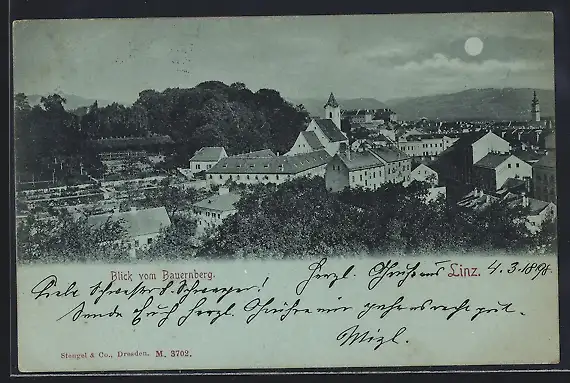 Blick vom Bauernberg. Herzl. Grüße aus Linz. 4.3.1898.
Liebe Schwester u. Schwager!
Sende Euch herzl. Grüße mir geht es recht gut.
Mizl.
Stengel & Co., Dresden. M. 3702.